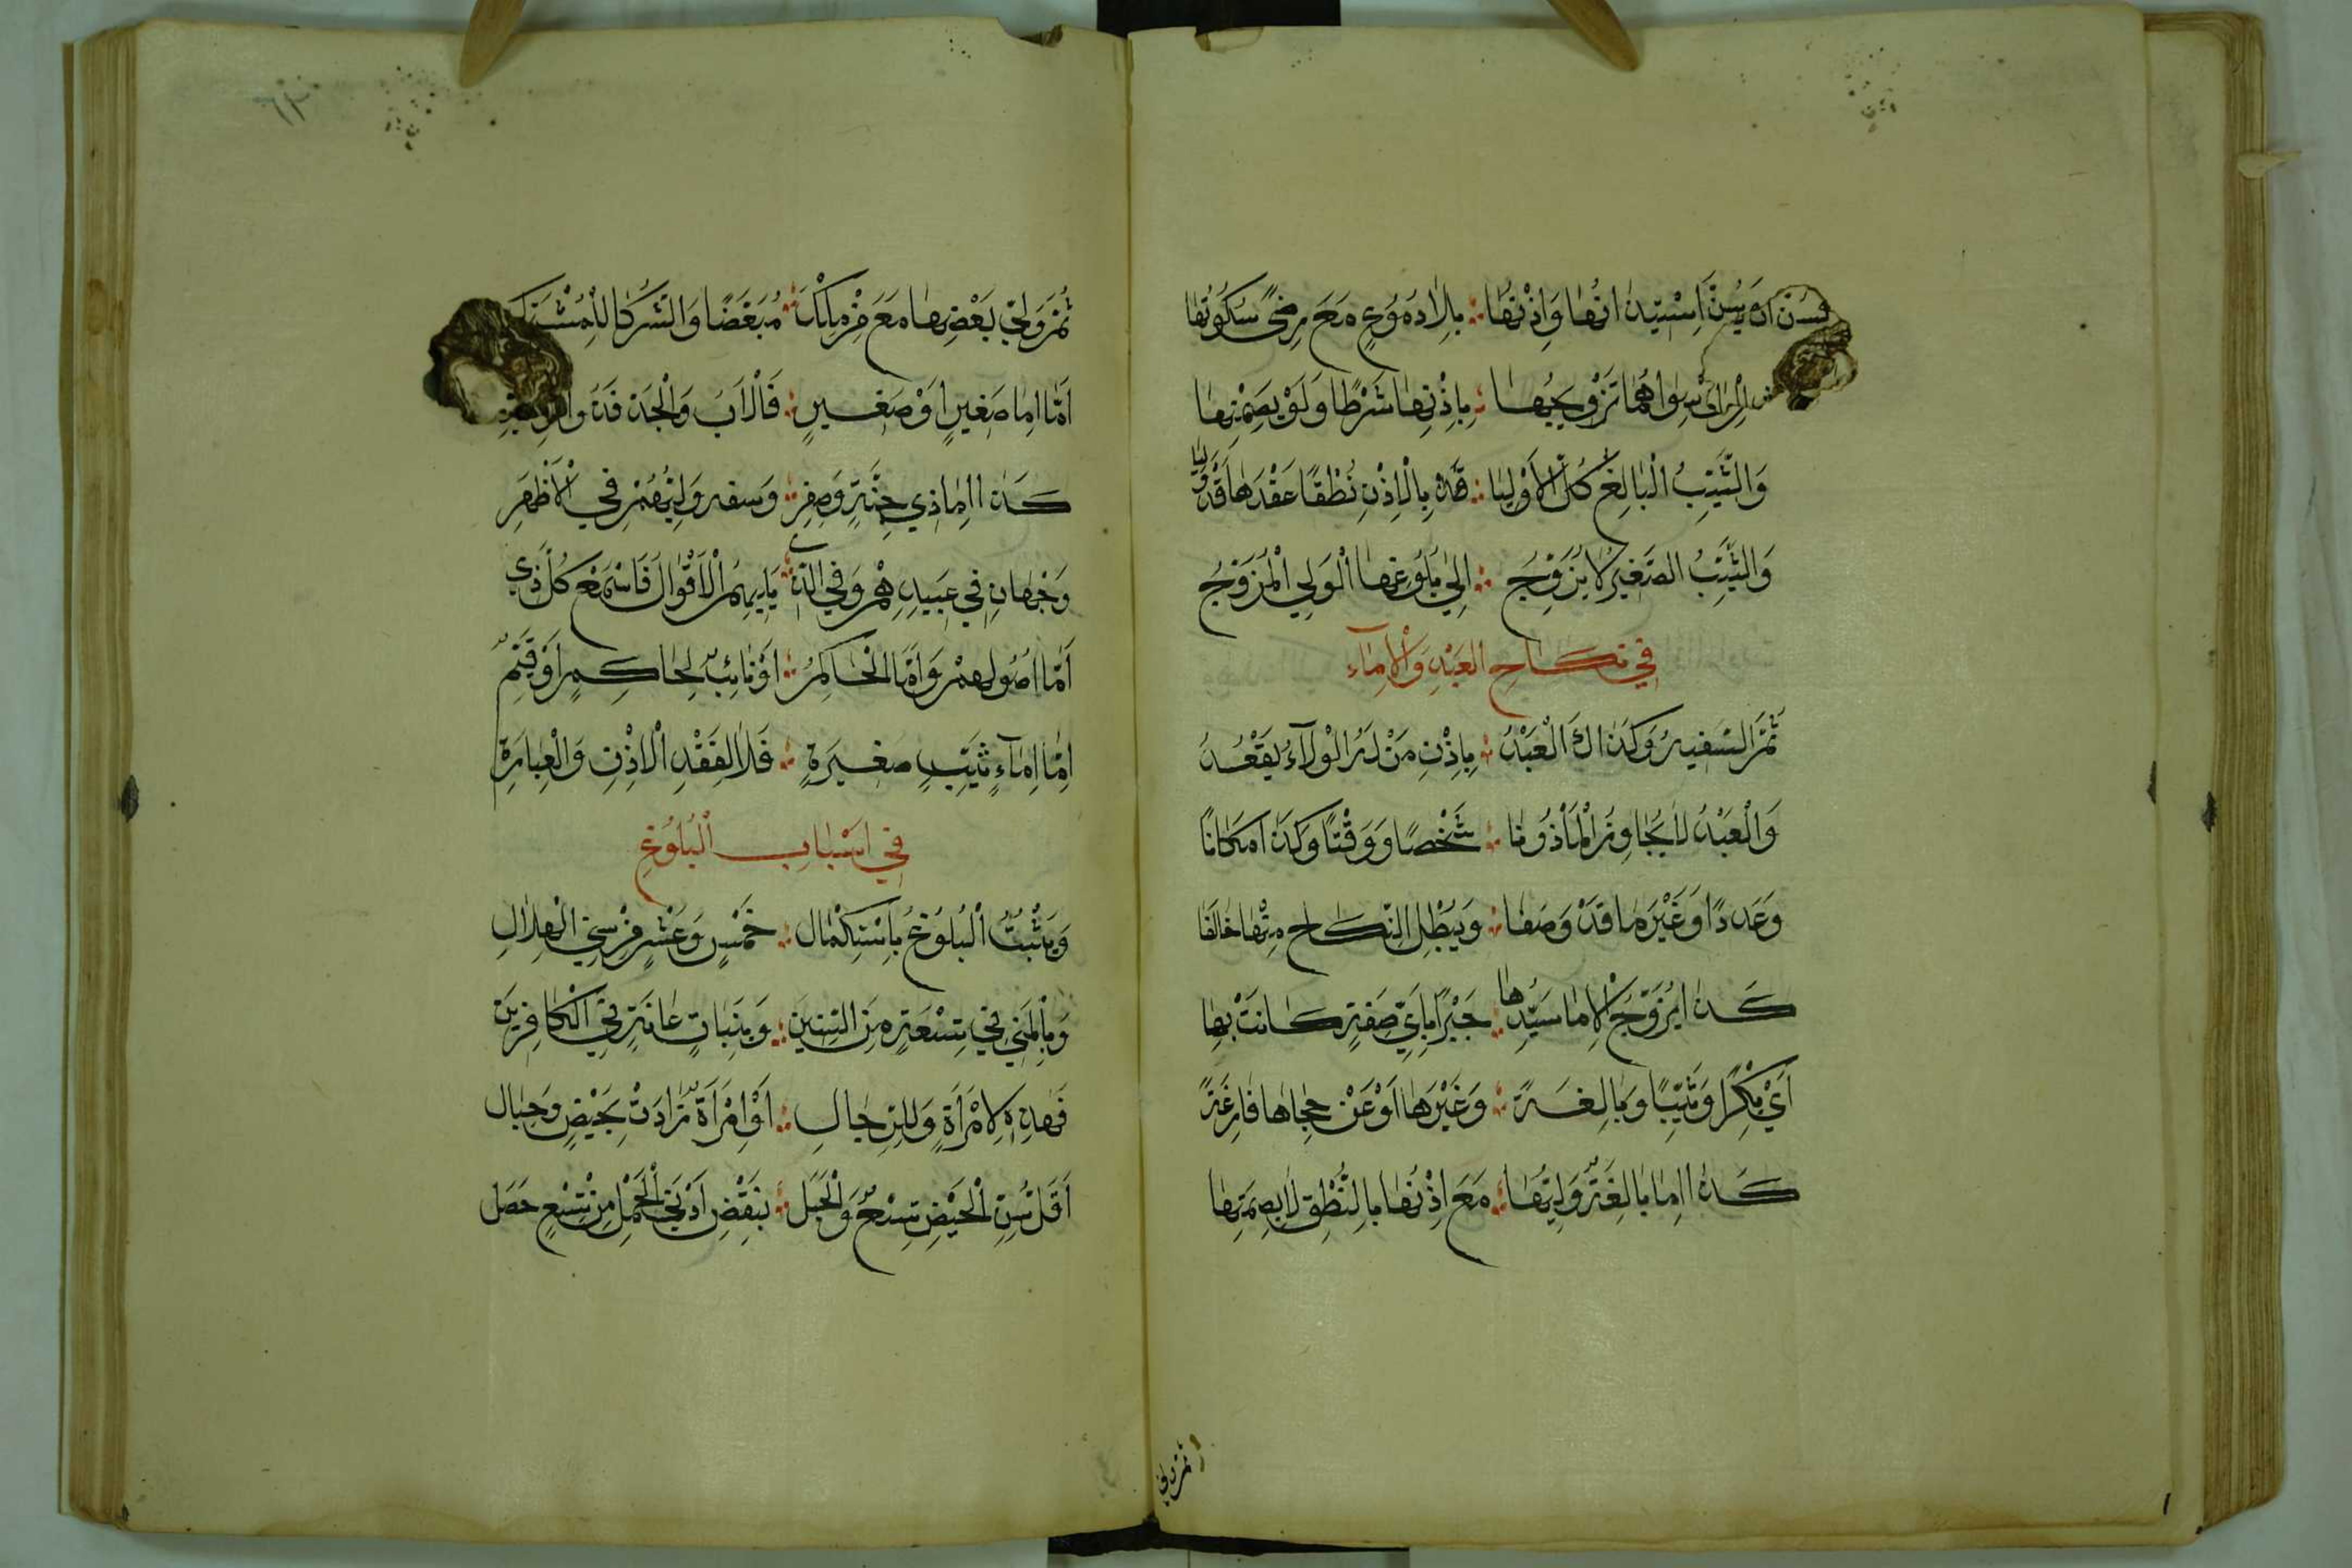 وَيُسَنُّ اسْتِيذَانُهَا وَاِذْنُهَا ؞ بِلَا دُمُوعٍ مَعَ رِضًى سُكُوتُهَا
سِوَاهُمَا تَزْوِيجُهَا ؞ بِاِذْنِهَا شَرْطًا وَلَوْ بِصَمْتِهَا
وَالثَّيِّبُ الْبَالِغُ كُلُّ الْاَوْلِيَا ؞ بِالْاِذْنِ نُطْقًا عَقْدَهَا قَدْ وَلِيَا
وَالثَّيِّبُ الصَّغِيرُ لَا يُزَوِّجُ ؞ اِلَى بُلُوغِهَا الْوَلِي الْمُزَوِّجُ
فِي نِكَاحِ الْعَبْدِ وَالْاِمَاءِ
ثُمَّ السَّفِيهُ وَكَذَاكَ الْعَبْدُ ؞ بِاِذْنِ مَنْ لَهُ الْوِلَآءُ يَعْقُدُ
وَالْعَبْدُ لَا يُجَاوِزُ الْمَأْذُونَا ؞ شَخْصًا وَوَقْتًا وَكَذَا مَكَانًا
وَعَدَدًا وَغَيْرَ مَا قَدْ وَصَفَا ؞ وَيُبْطِلُ النِّكَاحَ مِنْهَا خَالَفَا
كَذَا يُزَوِّجُ الْاِمَا سَيِّدُهَا ؞ جَبْرًا بِاَيِّ صِفَةٍ كَانَتْ بِهَا
اَيْ بِكْرًا وَثَيِّبًا وَبَالِغَةً ؞ وَغَيْرَهَا اَوْ عَنْ حِجَاهَا فَارِغَةً
كَذَا اِمَا بَالِغَةٍ وَلِيُّهَا ؞ مَعَ اِذْنُهَا بِالنُّطْقِ لَا بِصَمْتِهَا
ثُمَّ وَلِي
ثُمَّ وَلِيْ بَعْضِهَا مَعَ مَنْ مَلَكَا ؞ مُبَعَّضًا وَالشُّرَكَا لِلْمُشْتَرَكِ
اَمَّا اِمَا صَغِيرٍ اَوْ صَغِيرٍ ؞ فَالْاَبُ وَالْجَدُّ قَدْ
كَذَا اِمَا ذِي جِنَّةٍ وَصِغَرٍ ؞ وَسَفَهٍ وَلِيُّهُمْ فِي الْاَظْهَرِ
وَجْهَانِ فِي عَبِيدِهِمْ وَفِي الَّذِي ؞ يَلِيهِمُ الْاَقْوَالُ فَاسْتَمِعْ كُلَّ ذِي
اَمَّا اُصُولُهُمْ وَاَمَّا الْحَاكِمُ ؞ اَوْ نَائِبٌ لِحَاكِمٍ اَوْ قَيِّمٌ
اِمَّا اِمَآءٍ ثَيِّبٍ صَغِيرَةٍ ؞ فَلَا لِفَقْدِ الْاِذْنِ وَالْعِبَارَةِ
فِي اَسْبَابِ الْبُلُوغِ
وَيَثْبُتُ الْبُلُوغُ بِاسْتِكْمَالِ ؞ خَمْسٍ وَعَشْرٍ مِنْ سِنِي الْهِلَالِ
وَبِالْمَنِيْ فِي تِسْعَةٍ مِنَ السِّنِينَ ؞ وَبِنَبَاتِ عَانَةٍ فِي الْكَافِرِينَ
فَهَذِهِ لِامْرَأَةٍ وَلِلرِّجَالِ ؞ اَوِ امْرَأَةٌ زَادَتْ بِحَيْضٍ وَحِبَالِ
اَقَلُّ سِنِّ الْحَيْضِ تِسْعٌ وَالْحَبَلْ ؞ بِنَقْضِ اَدْنَى الْحَمْلِ مِنْ تِسْعٍ حَصَلْ